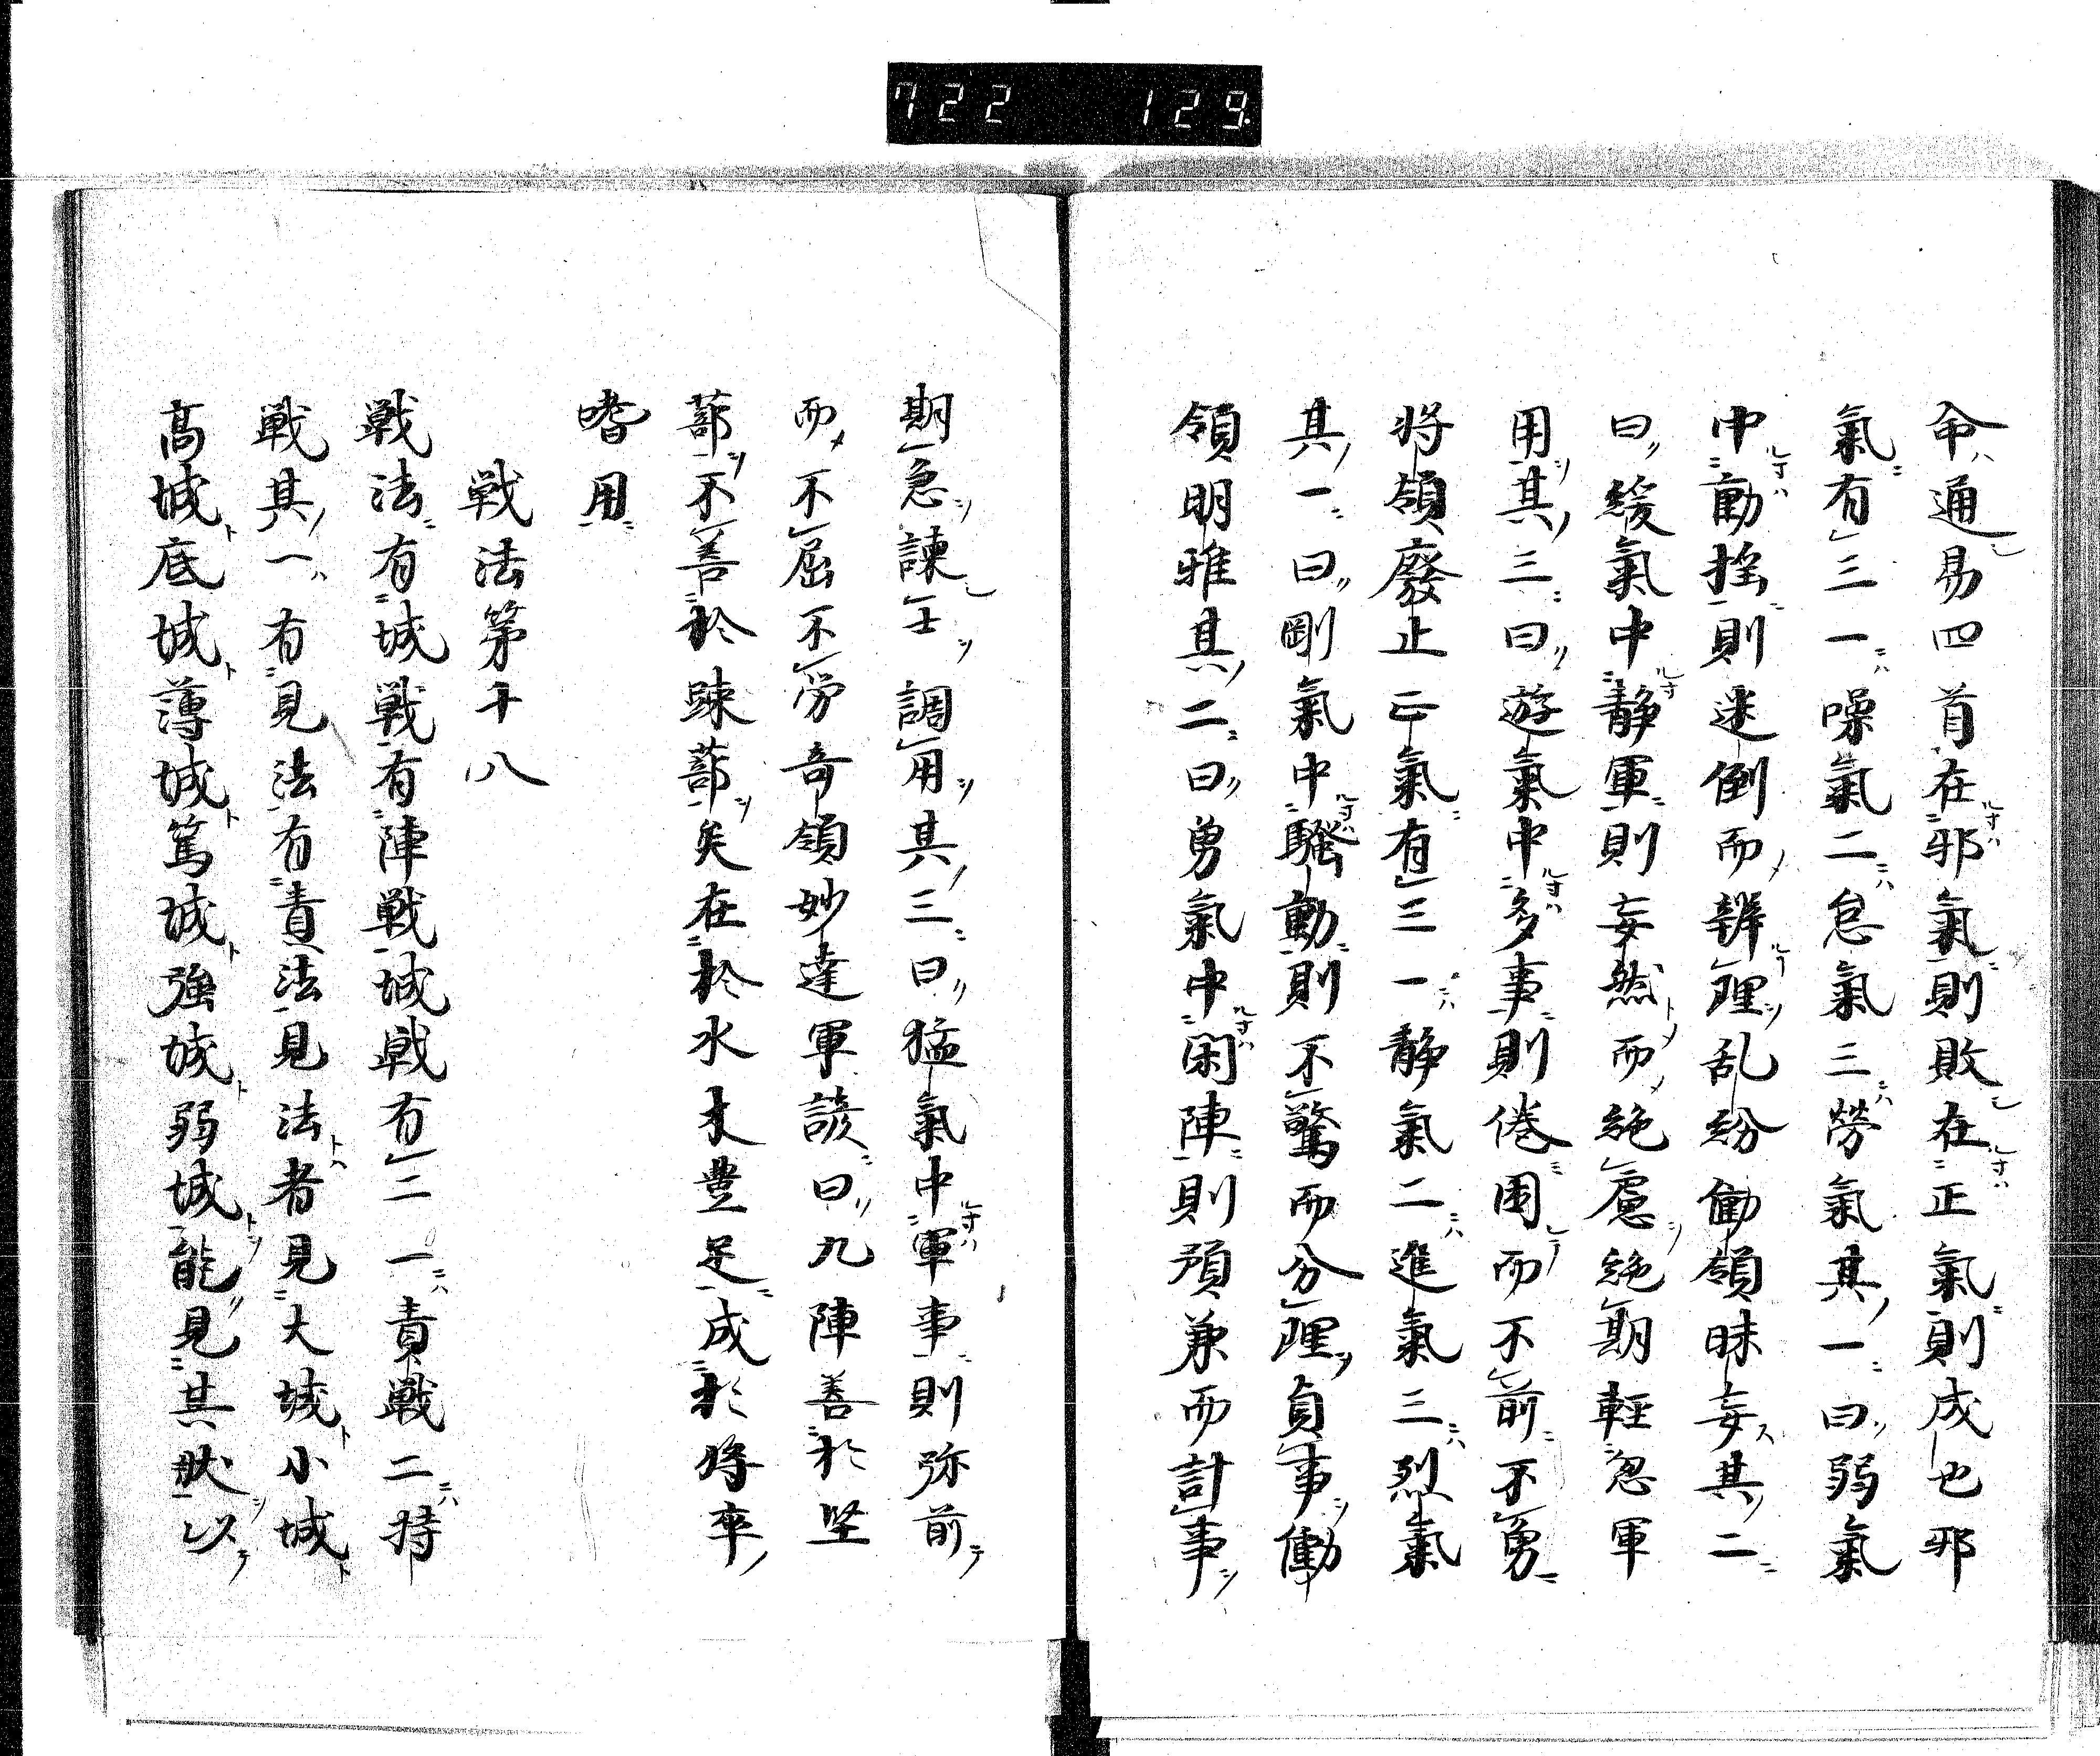 722 129
命通易四首在邪氣則敗在正氣則成也邪
氣有三一噪氣二怠氣三勞氣其一曰弱氣
中動搖則迷倒而辨理乱紛働領昧妄其二
曰緩氣中静軍則妄然而絶慮絶期軽忽軍
用其三曰遊氣中多事則倦困而不前不勇
将領廢止正氣有三一静氣二進氣三烈氣
其一曰剛氣中騒動則不驚而分理貞事働
領明雅其二曰勇氣中閑陣則預兼而計事
期急諫士調用其三曰猛氣中軍事則弥前
而不屈不労奇領妙達軍談曰九陣善於坚
蔀不善於疎蔀矣在於水木豊足成於将卒
嗜用
戦法第十八
戦法有城戦有陣戦城戦有二一責戦二持
戦其一有見法有責法見法者見大城小城
高城底城薄城篤城強城弱城能見其状以